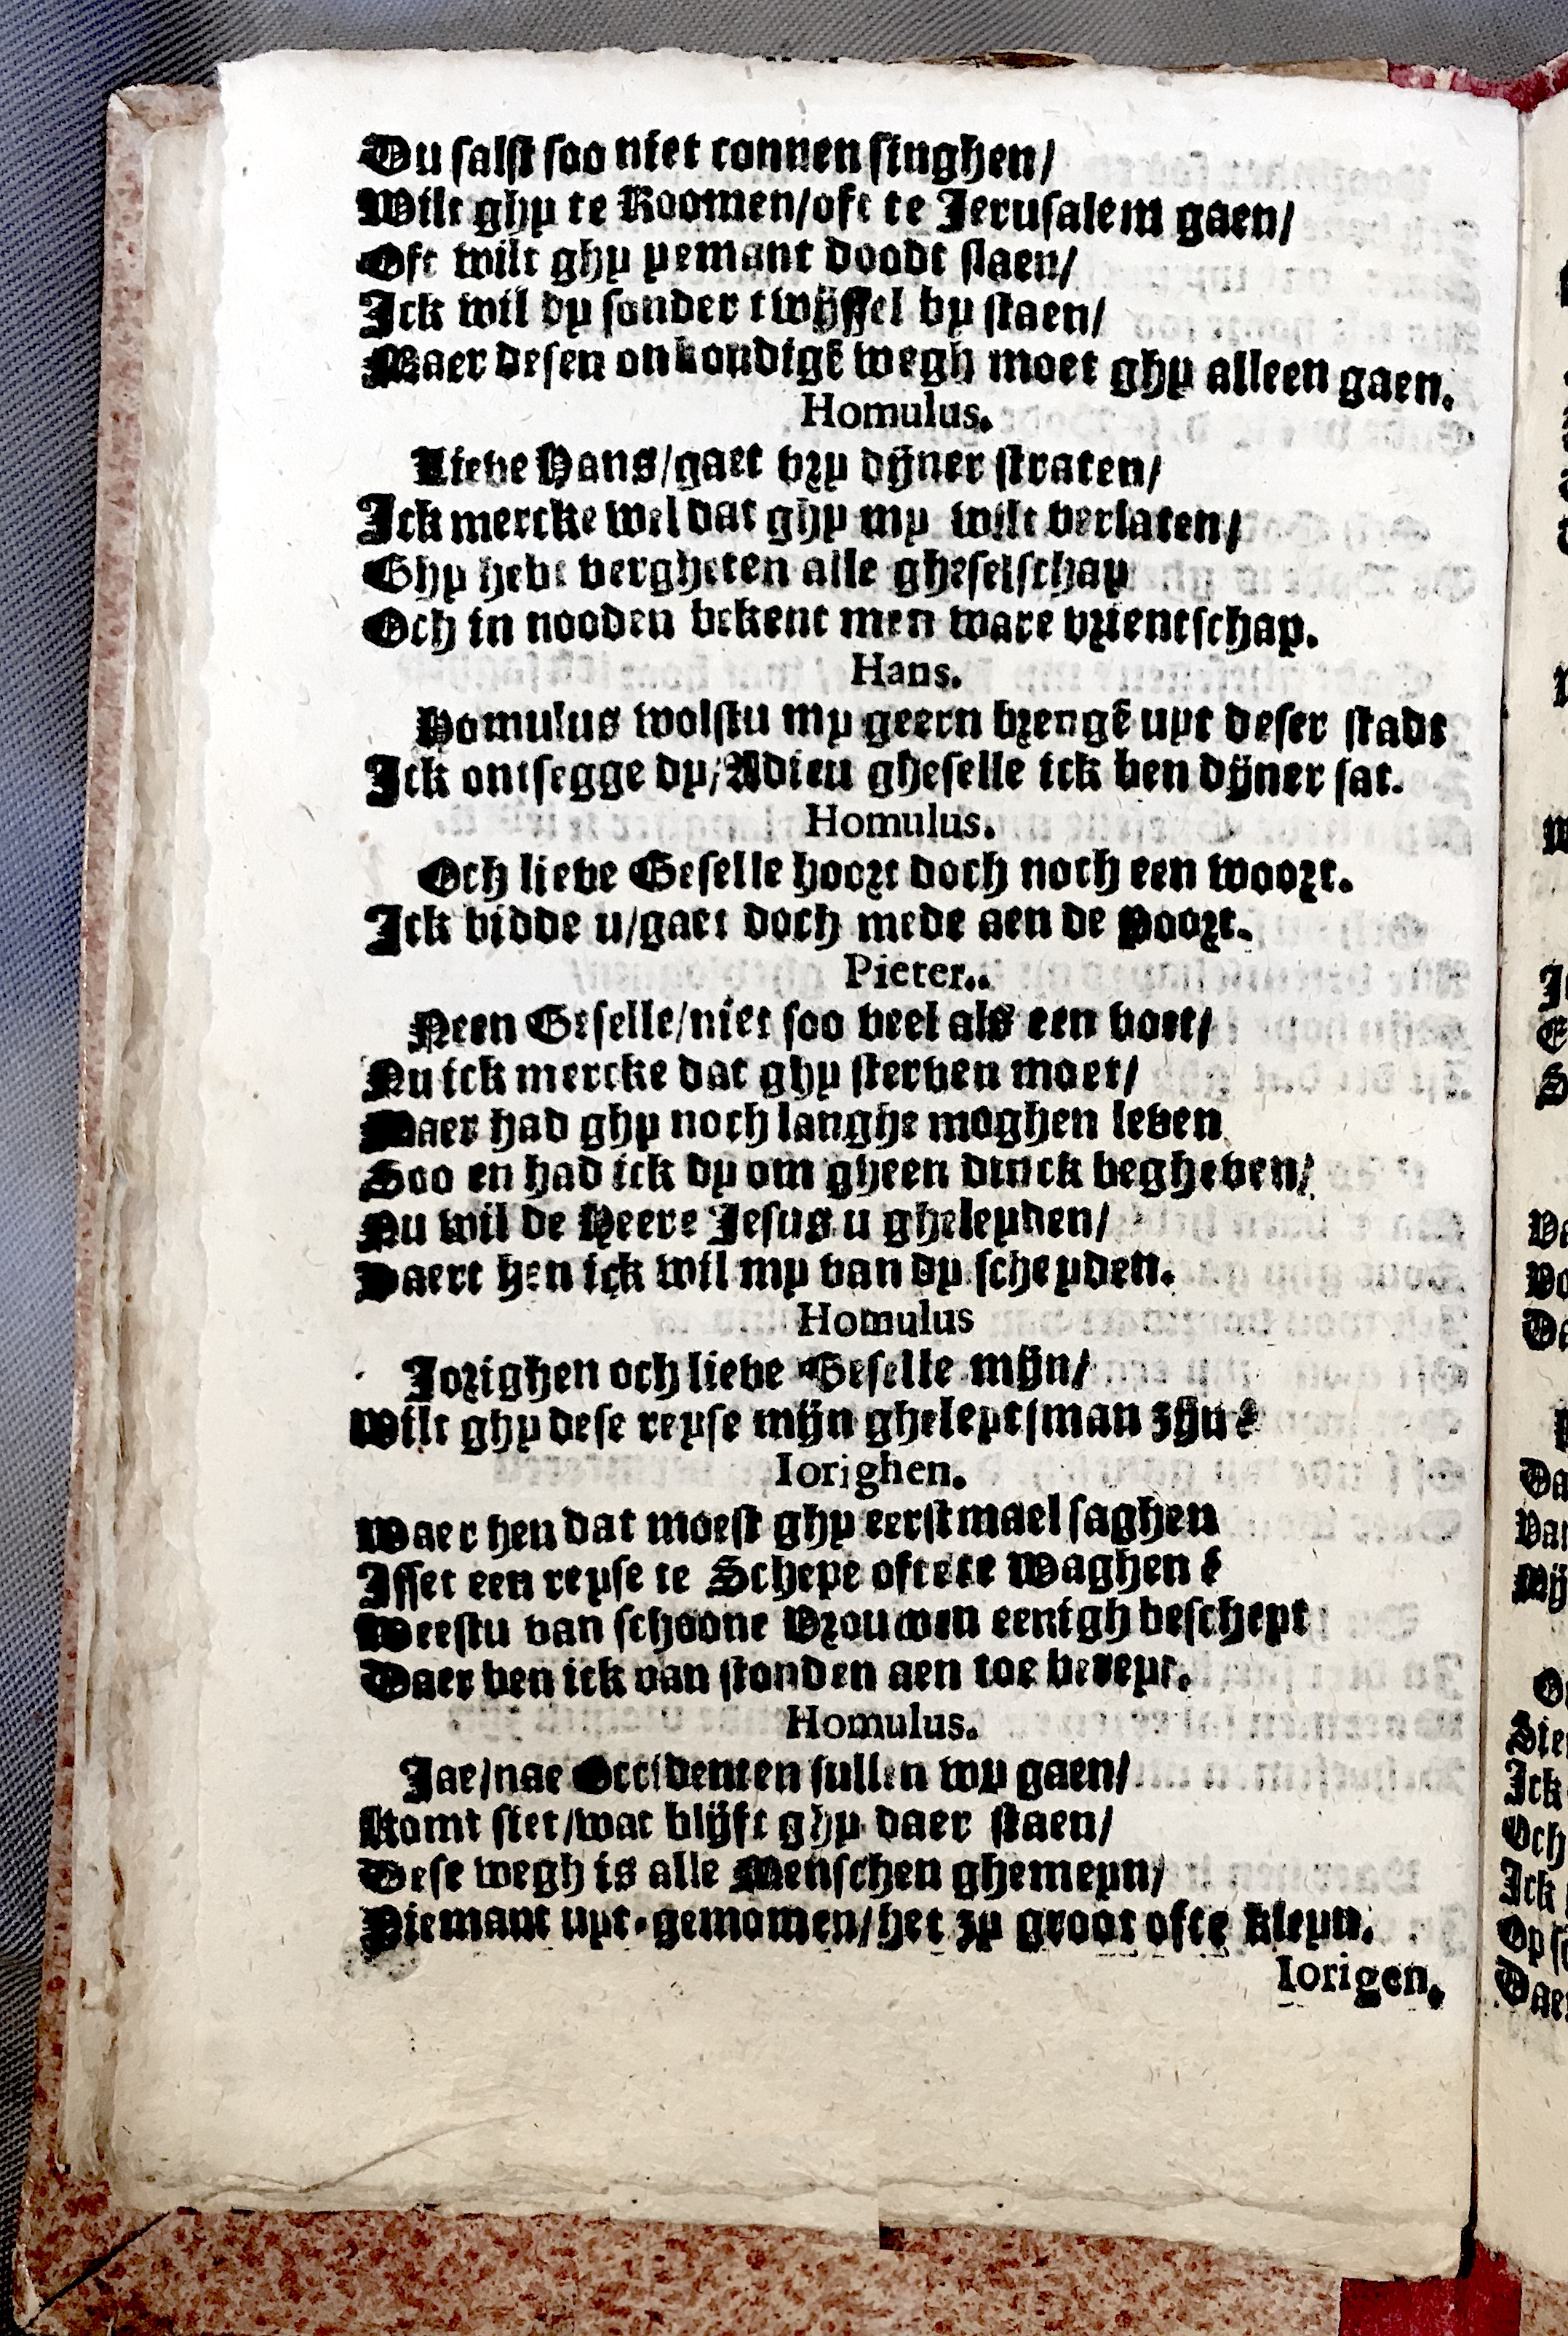 Du salst soo niet connen singhen/
Wilt ghy te Roomen/oft te Jerusalem gaen/
Oft wilt ghy yemant doodt slaen/
Ick wil dy sonder twijffel by staen/
Maer desen onkondigẽ wegh moet ghy alleen gaen.
Homulus.
Lieve Hans/gaet vry dijner straten/
Ick mercke wel dat ghy my wilt verlaten/
Ghy hebt vergheten alle gheselschap
Och in nooden bekent men ware vrientschap.
Hans.
Homulus wolstu my geern brengẽ uyt deser stadt
Ick ontsegge dy/Adieu gheselle ick ben dijner sat.
Homulus.
Och lieve Geselle hoort doch noch een woort.
Ick bidde u/gaet doch mede aen de Poort.
Pieter..
Neen Geselle/niet soo veel als een voet/
Nu ick mercke dat ghy sterven moet/
Maer had ghy noch langhe moghen leven
Soo en had ick dy om gheen dinck begheven/
Nu wil de Heere Jesus u gheleyden/
Daert hen ick wil my van dy scheyden.
Homulus
Jorighen och lieve Geselle mijn/
Wilt ghy dese reyse mijn gheleytsman zijn?
Iorighen.
Waer hen dat moest ghy eerstmael saghen
Isset een reyse te Schepe ofte te Waghen?
Weestu van schoone Vrouwen eenigh bescheyt
Daer ben ick van stonden aen toe bereyt.
Homulus.
Jae/nae Occidenten sullen wy gaen/
Komt siet/wat blijft ghy daer staen/
Dese wegh is alle Menschen ghemeyn/
Niemant uyt-genomen/het zy groot ofte kleyn.
Iorigen.